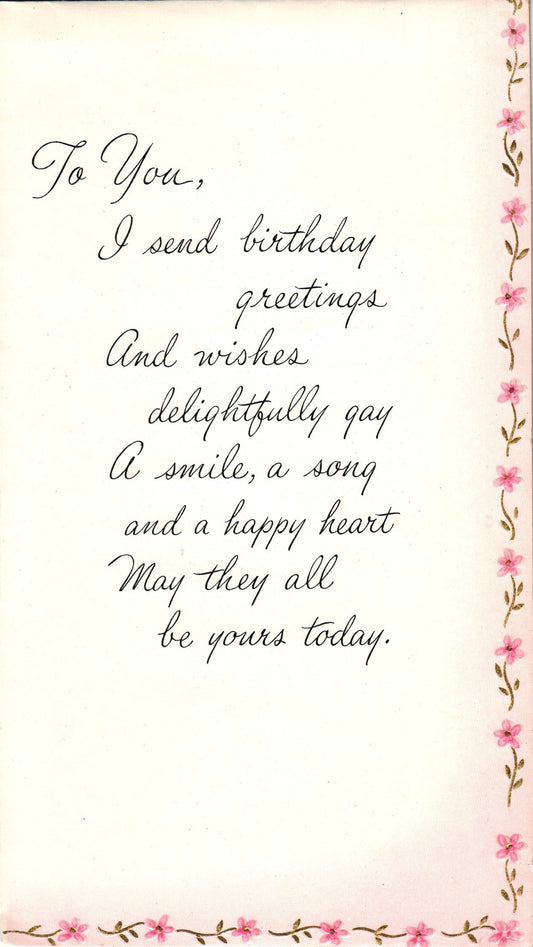 To You,
I send birthday
greetings
And wishes
delightfully gay
A smile, a song
and a happy heart
May they all
be yours today.